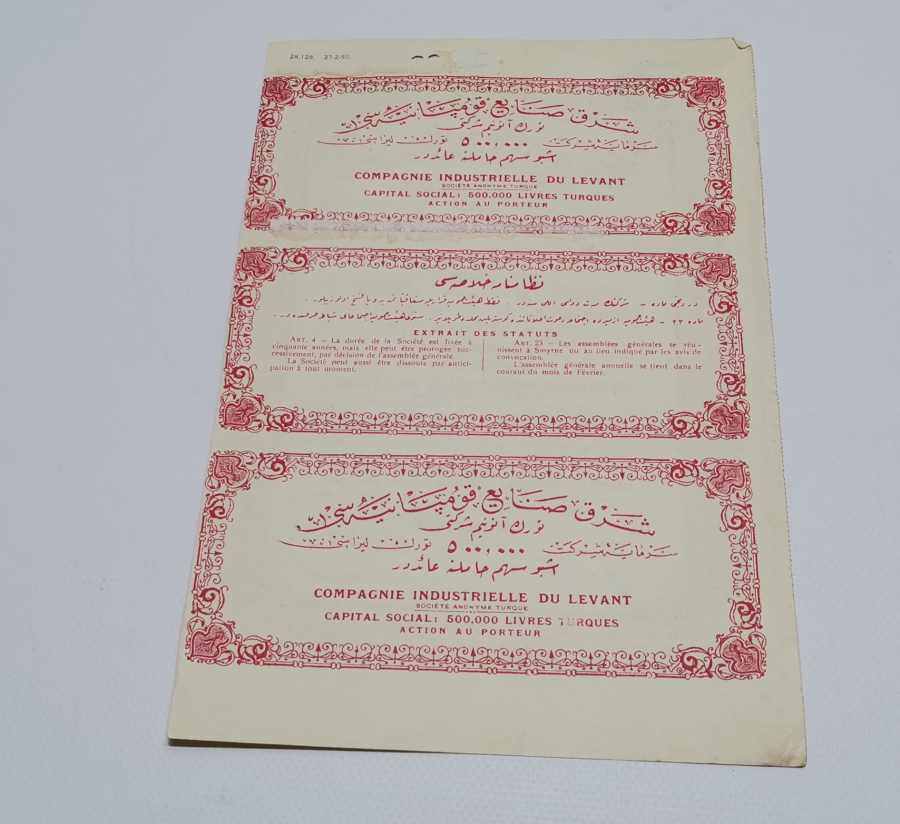 28.128. 27-2-30.
شرق صنایع قومپانیه سی
تورك آنونیم شرکتی
سرمایهٔ شرکت ۵۰۰,۰۰۰ تورك لیراسی
اشبو سهم حاملنه عائددر
COMPAGNIE INDUSTRIELLE DU LEVANT
SOCIÉTÉ ANONYME TURQUE
CAPITAL SOCIAL: 500,000 LIVRES TURQUES
ACTION AU PORTEUR
نظامنامه خلاصه سی
EXTRAIT DES STATUTS
ART. 4 – La durée de la Société est fixée à
cinquante années, mais elle peut être prorogée suc-
cestivement, par décision de l'assemblée générale.
La Société peut aussi être dissoute par antici-
pation à tout moment.
ART. 23 – Les assemblées générales se réu-
nissent à Smyrne ou au lieu indiqué par les avis de
convocation.
L'assemblée générale annuelle se tient dans le
courant du mois de février.
شرق صنایع قومپانیه سی
تورك آنونیم شرکتی
سرمایهٔ شرکت ۵۰۰,۰۰۰ تورك لیراسی
اشبو سهم حاملنه عائددر
COMPAGNIE INDUSTRIELLE DU LEVANT
SOCIÉTÉ ANONYME TURQUE
CAPITAL SOCIAL: 500,000 LIVRES TURQUES
ACTION AU PORTEUR